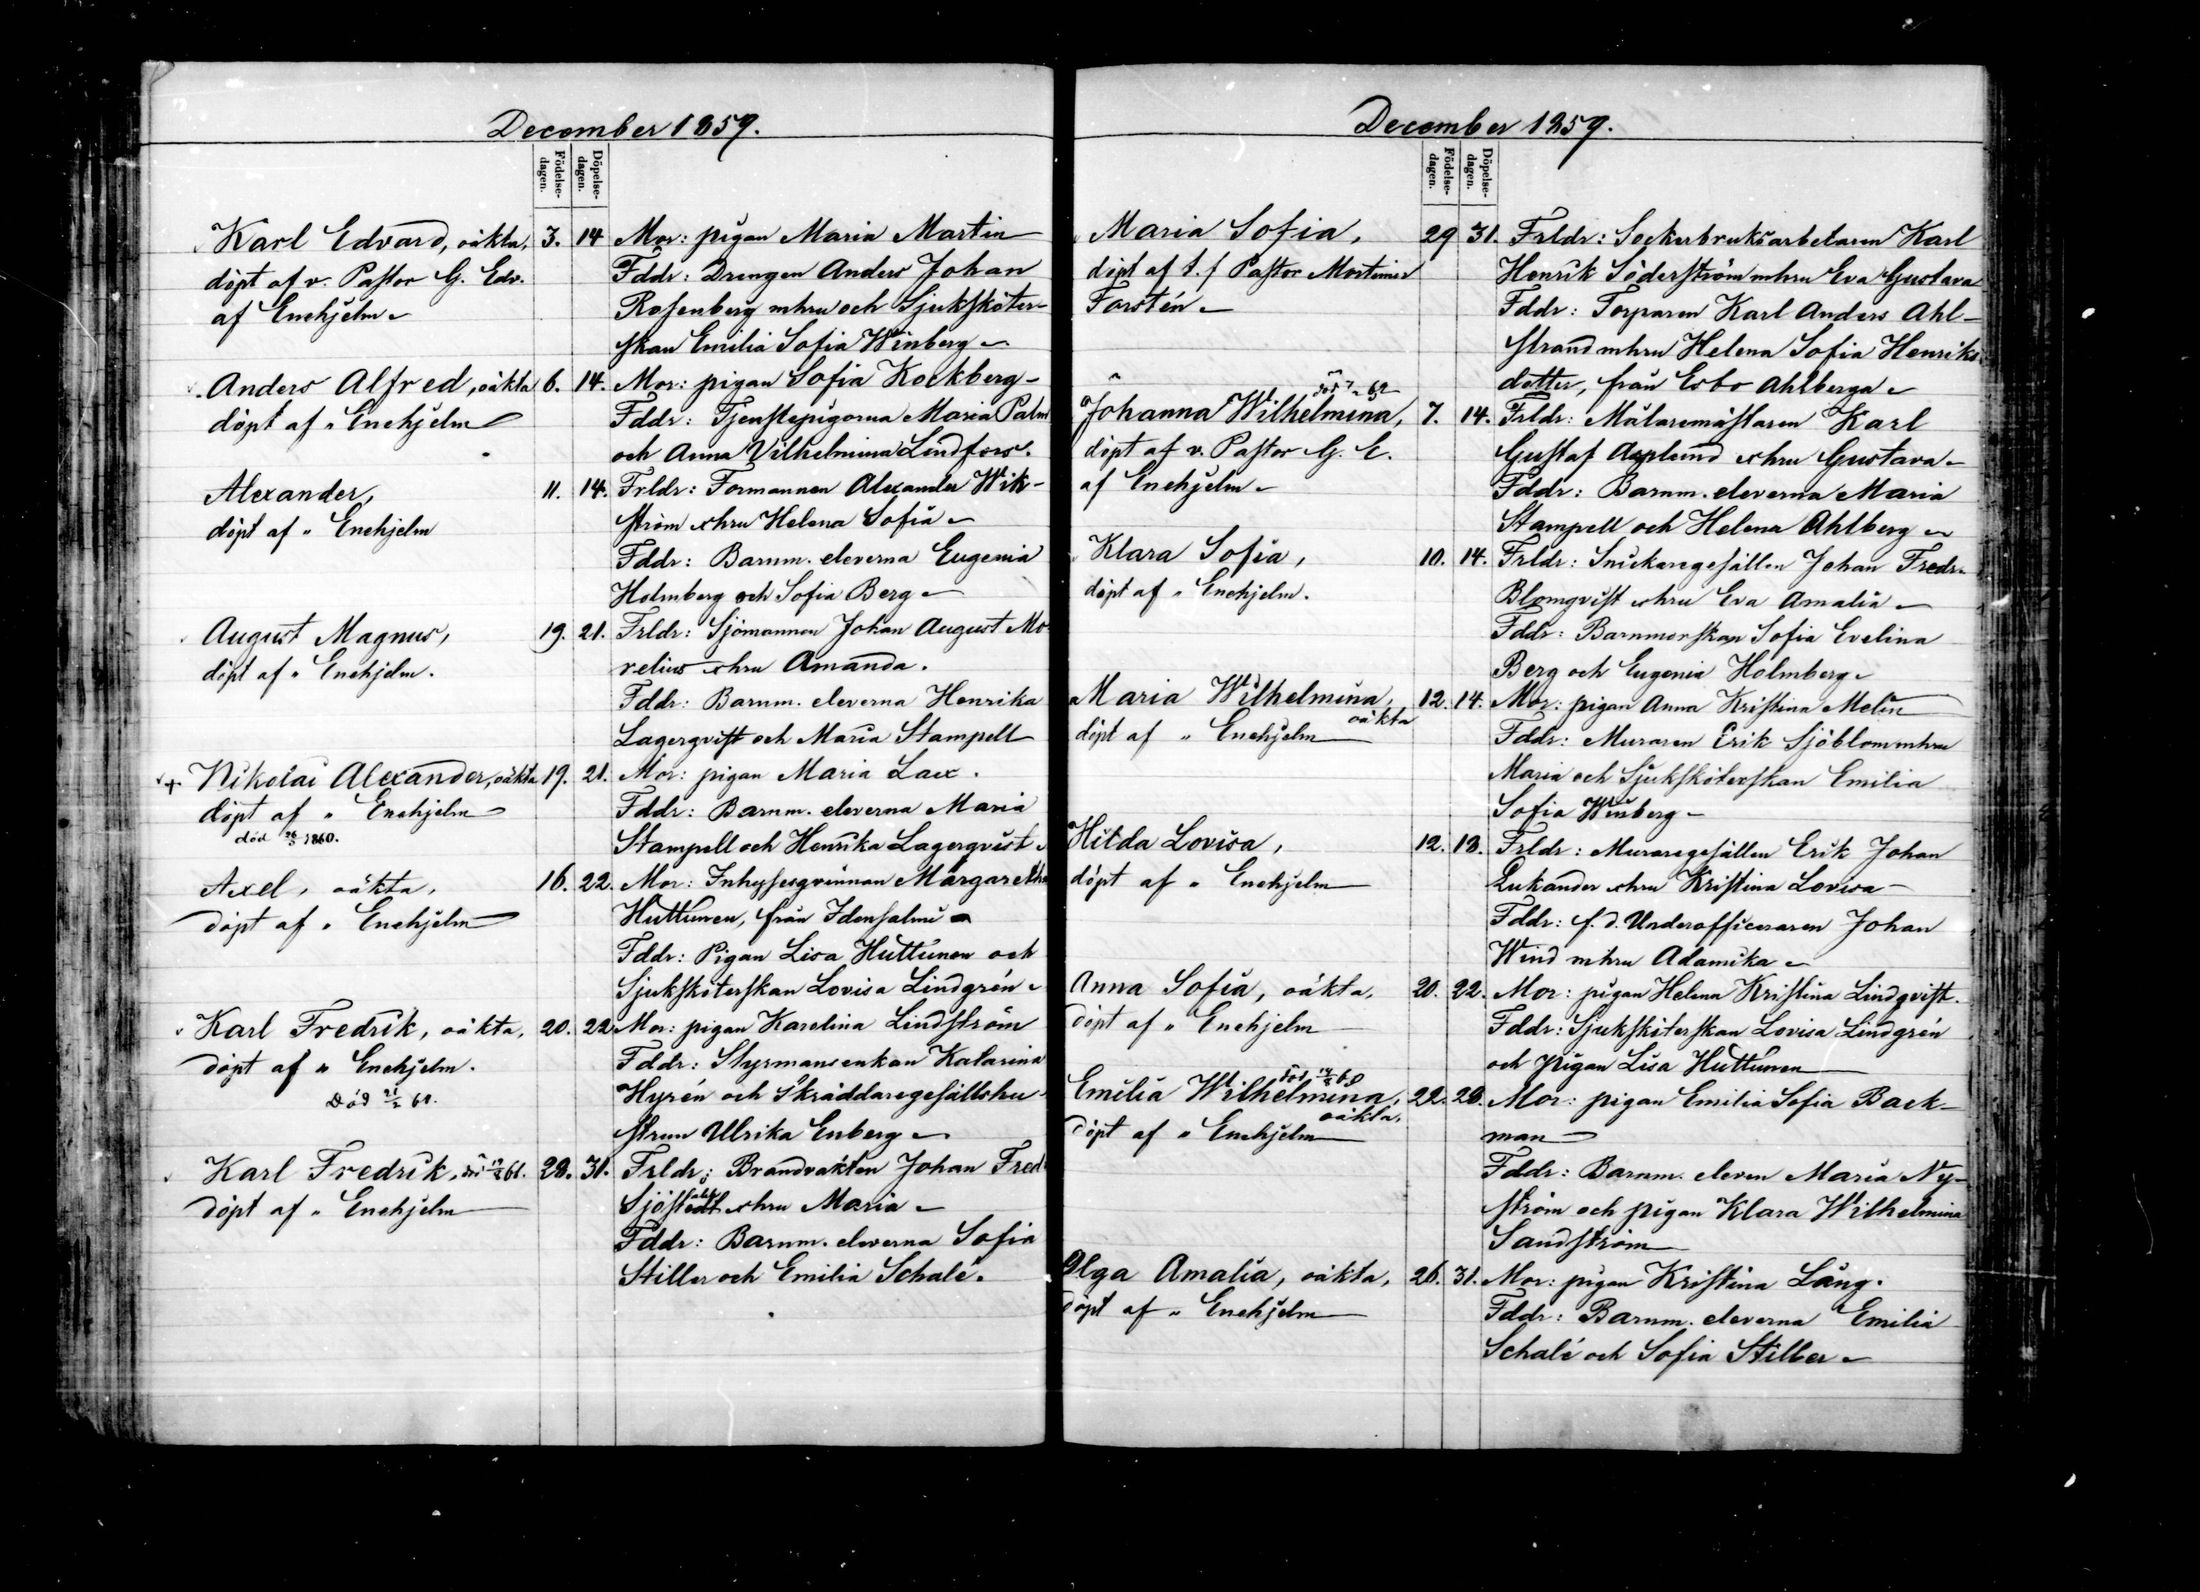 December 1859.
Födelse-dagen.
Döpelse-dagen.
Karl Edvard, oäkta, 3. 14 Mor: pigan Maria Martin
döpt af v. Pastor G. Edv. Fddr: Drengen Anders Johan
af Enehjelm Rosenberg mhru och Sjuksköter-
skan Emilia Sofia Winberg
Anders Alfred, oäkta 6. 14. Mor: pigan Sofia Kockberg
döpt af " Enehjelm Fddr: Tjenstepigorna Maria Palm
och Anna Vilhelmina Lindfors.
Alexander, 11. 14. Frldr: Formannen Alexander Wik-
döpt af " Enehjelm ström o hru Helena Sofia
Fddr: Barnm. eleverna Eugenia
Holmberg och Sofia Berg
August Magnus, 19. 21. Frldr: Sjömannen Johan August Mo-
döpt af " Enehjelm. relius o hru Amanda.
Fddr: Barnm. eleverna Henrika
Lagerqvist och Maria Stampell
+ Nikolai Alexander, oäkta 19. 21. Mor: pigan Maria Lax.
döpt af " Enehjelm Fddr: Barnm. eleverna Maria
död 1860. Stampell och Henrika Lagerqvist
Axel, oäkta, 16. 22. Mor: Inhysesqvinnan Margaretha
döpt af " Enehjelm Huttunen, från Idensalmi
Fddr: Pigan Lisa Huttunen och
Sjuksköterskan Lovisa Lindgrén
Karl Fredrik, oäkta, 20. 22 Mor: pigan Karolina Lindström
döpt af " Enehjelm. Fddr: Styrmansenkan Katarina
Död 60. Hyrén och Skräddaregesällshu-
strun Ulrika Enberg
Karl Fredrik, död 61. 28. 31. Frldr: Brandvakten Johan Fred.
döpt af " Enehjelm Sjöstedt o hru Maria
Fddr: Barnm. eleverna Sofia
Stiller och Emilia Schalé.
December 1859.
Födelse-dagen.
Döpelse-dagen.
Maria Sofia, 29 31. Frldr: Sockerbruksarbetaren Karl
döpt af t. f Pastor Mortimer Henrik Söderström mhru Eva Gustava
Forstén Fddr: Torparen Karl Anders Ahl-
strand mhru Helena Sofia Henriks
dotter, från Esbo Ahlberga
död 62
Johanna Wilhelmina, 7. 14. Frldr: Målaremästaren Karl
döpt af v. Pastor G. E. Gustaf Asplund o hru Gustava
af Enehjelm Fddr: Barnm. eleverna Maria
Stampell och Helena Ahlberg
Klara Sofia, 10. 14. Frldr: Snickaregesällen Johan Fredr.
döpt af " Enehjelm. Blomqvist o hru Eva Amalia
Fddr: Barnmorskan Sofia Evelina
Berg och Eugenia Holmberg
Maria Wilhelmina, oäkta 12. 14. Mor: pigan Anna Kristina Melin
döpt af " Enehjelm Fddr: Muraren Erik Sjöblom mhru
Maria och Sjuksköterskan Emilia
Sofia Winberg
Hilda Lovisa, 12. 18. Frldr: Muraregesällen Erik Johan
döpt af " Enehjelm Lukander o hru Kristina Lovisa
Fddr: f. d. Underofficeraren Johan
Wind mhru Adamika
Anna Sofia, oäkta, 20. 22. Mor: pigan Helena Kristina Lindqvist.
döpt af " Enehjelm Fddr: Sjuksköterskan Lovisa Lindgrén
och pigan Lisa Huttunen
död 60
Emilia Wilhelmina, oäkta, 22. 28. Mor: pigan Emilia Sofia Back-
döpt af " Enehjelm man
Fddr: Barnm. eleven Maria Ny-
ström och pigan Klara Wilhelmina
Sandström
Olga Amalia, oäkta, 26. 31. Mor: pigan Kristina Lång.
döpt af " Enehjelm Fddr: Barnm. eleverna Emilia
Schalé och Sofia Stiller